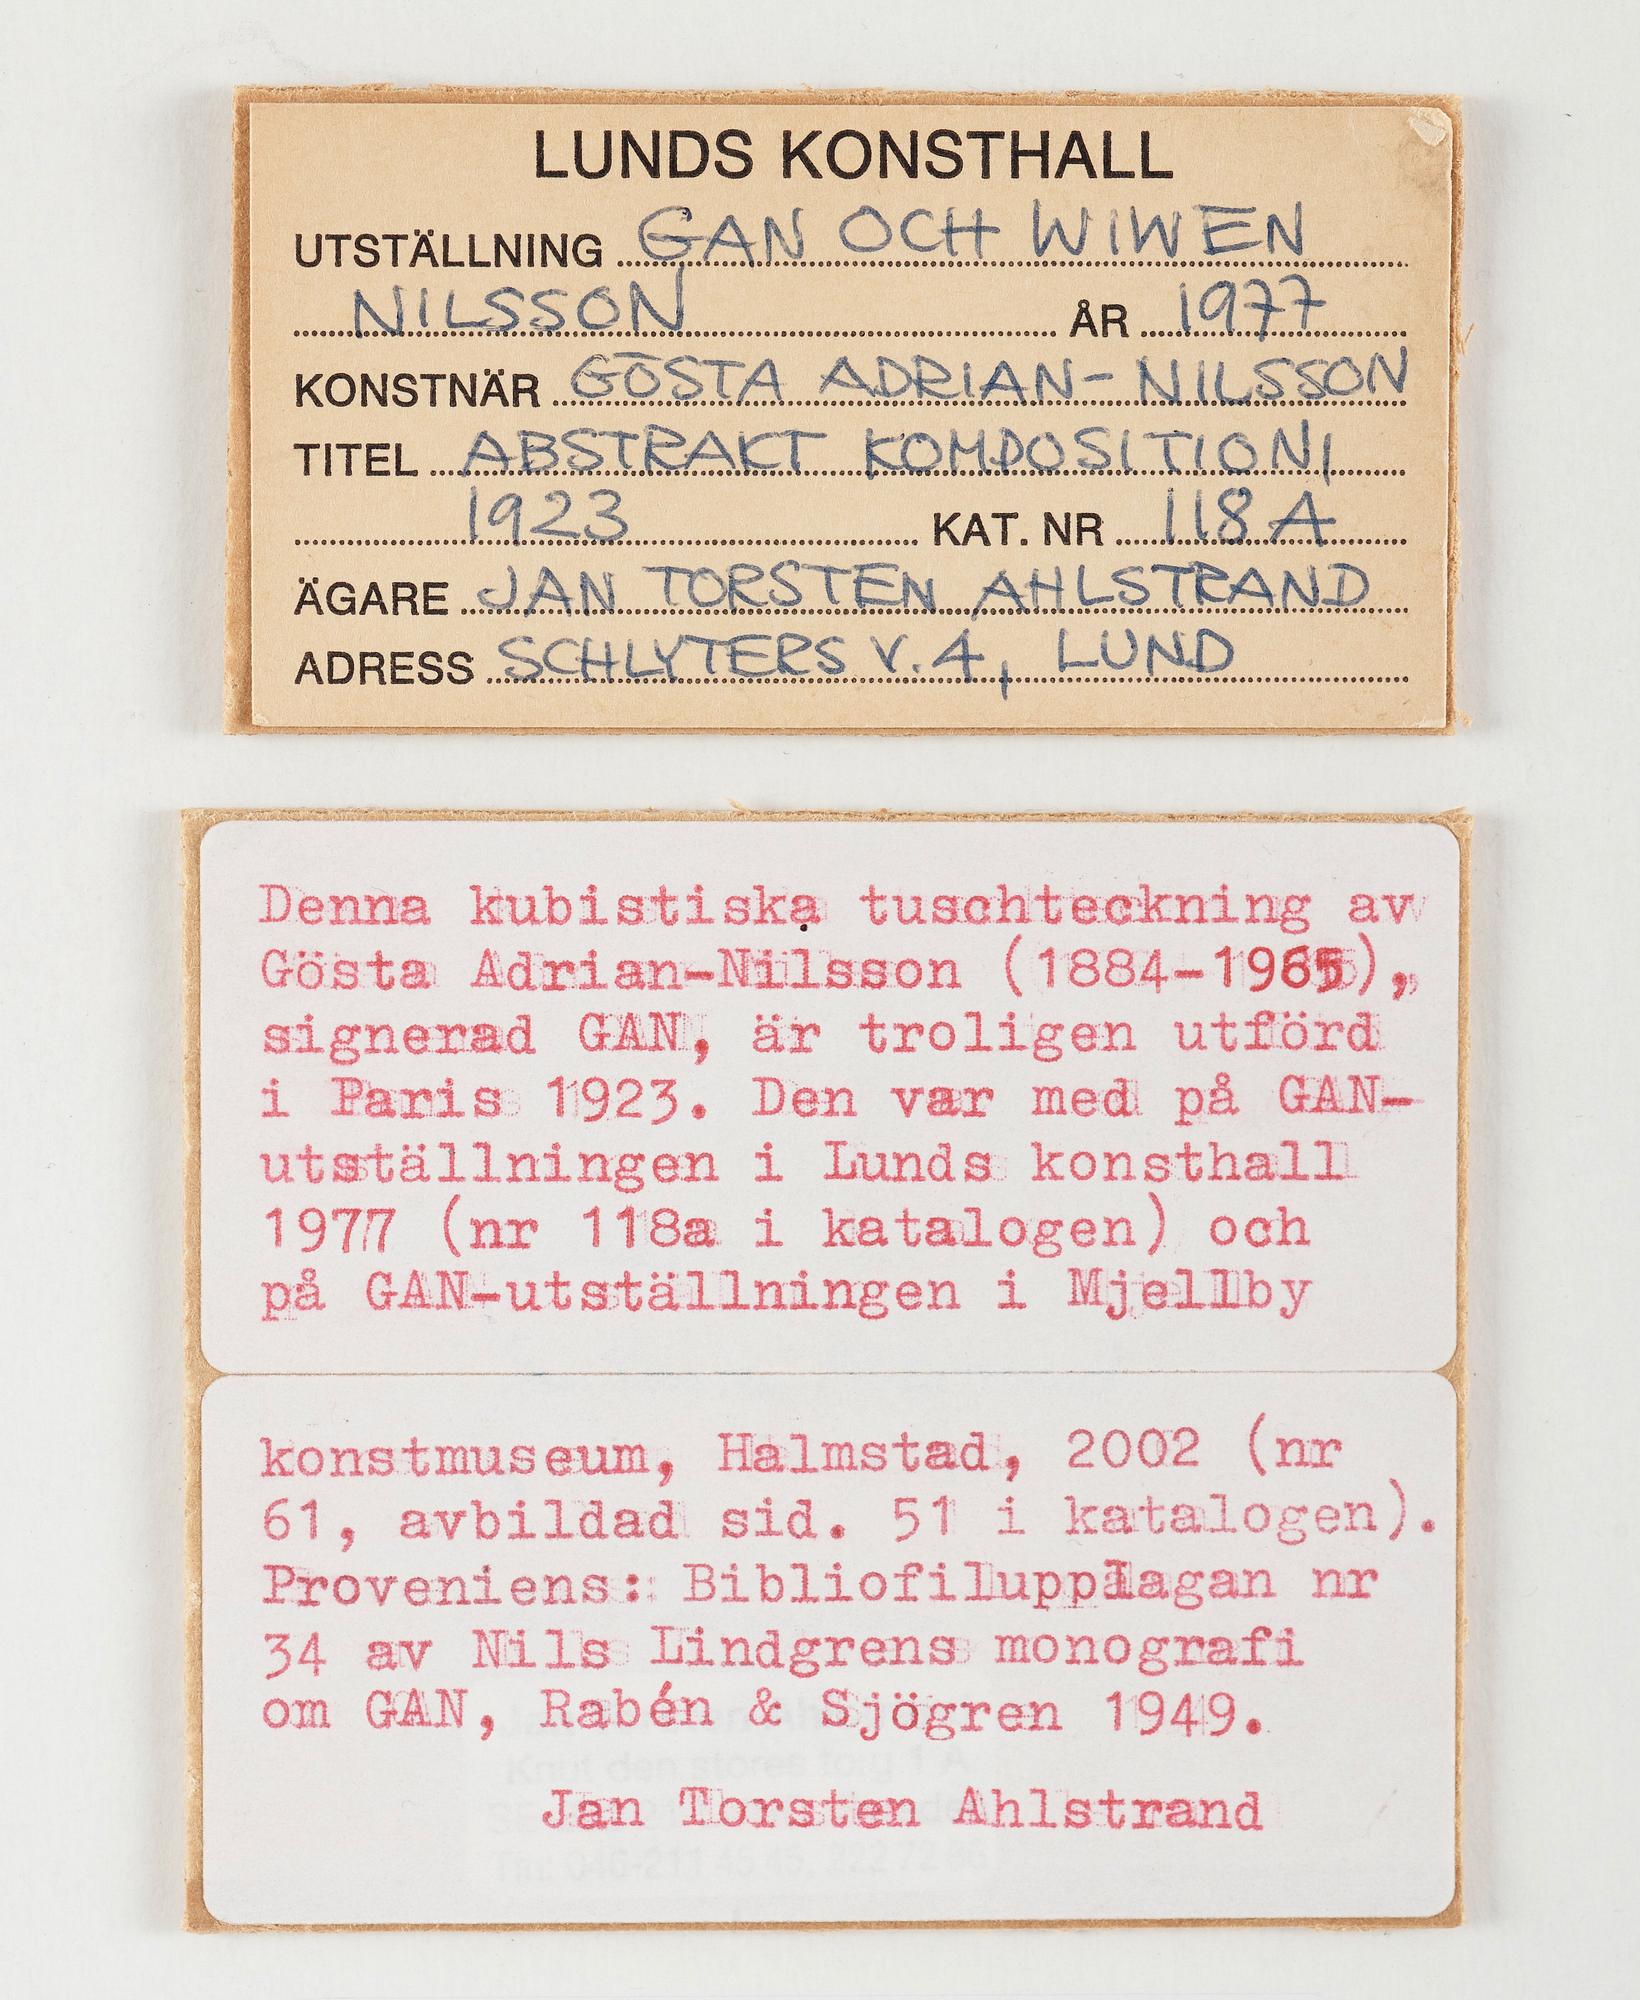 LUNDS KONSTHALL
UTSTÄLLNING GAN OCH WIWEN
NILSSON ÅR 1977
KONSTNÄR GÖSTA ADRIAN-NILSSON
TITEL ABSTRAKT KOMPOSITION,
1923 KAT. NR 118 A
ÄGARE JAN TORSTEN AHLSTRAND
ADRESS SCHLYTERS V. 4, LUND
Denna kubistiska tuschteckning av
Gösta Adrian-Nilsson (1884-1965),
signerad GAN, är troligen utförd
i Paris 1923. Den var med på GAN-
utställningen i Lunds konsthall
1977 (nr 118a i katalogen) och
på GAN-utställningen i Mjellby
konstmuseum, Halmstad, 2002 (nr
61, avbildad sid. 51 i katalogen).
Proveniens: Bibliofilupplagan nr
34 av Nils Lindgrens monografi
om GAN, Rabén & Sjögren 1949.
Knut den stores torg 1 A
Jan Torsten Ahlstrand